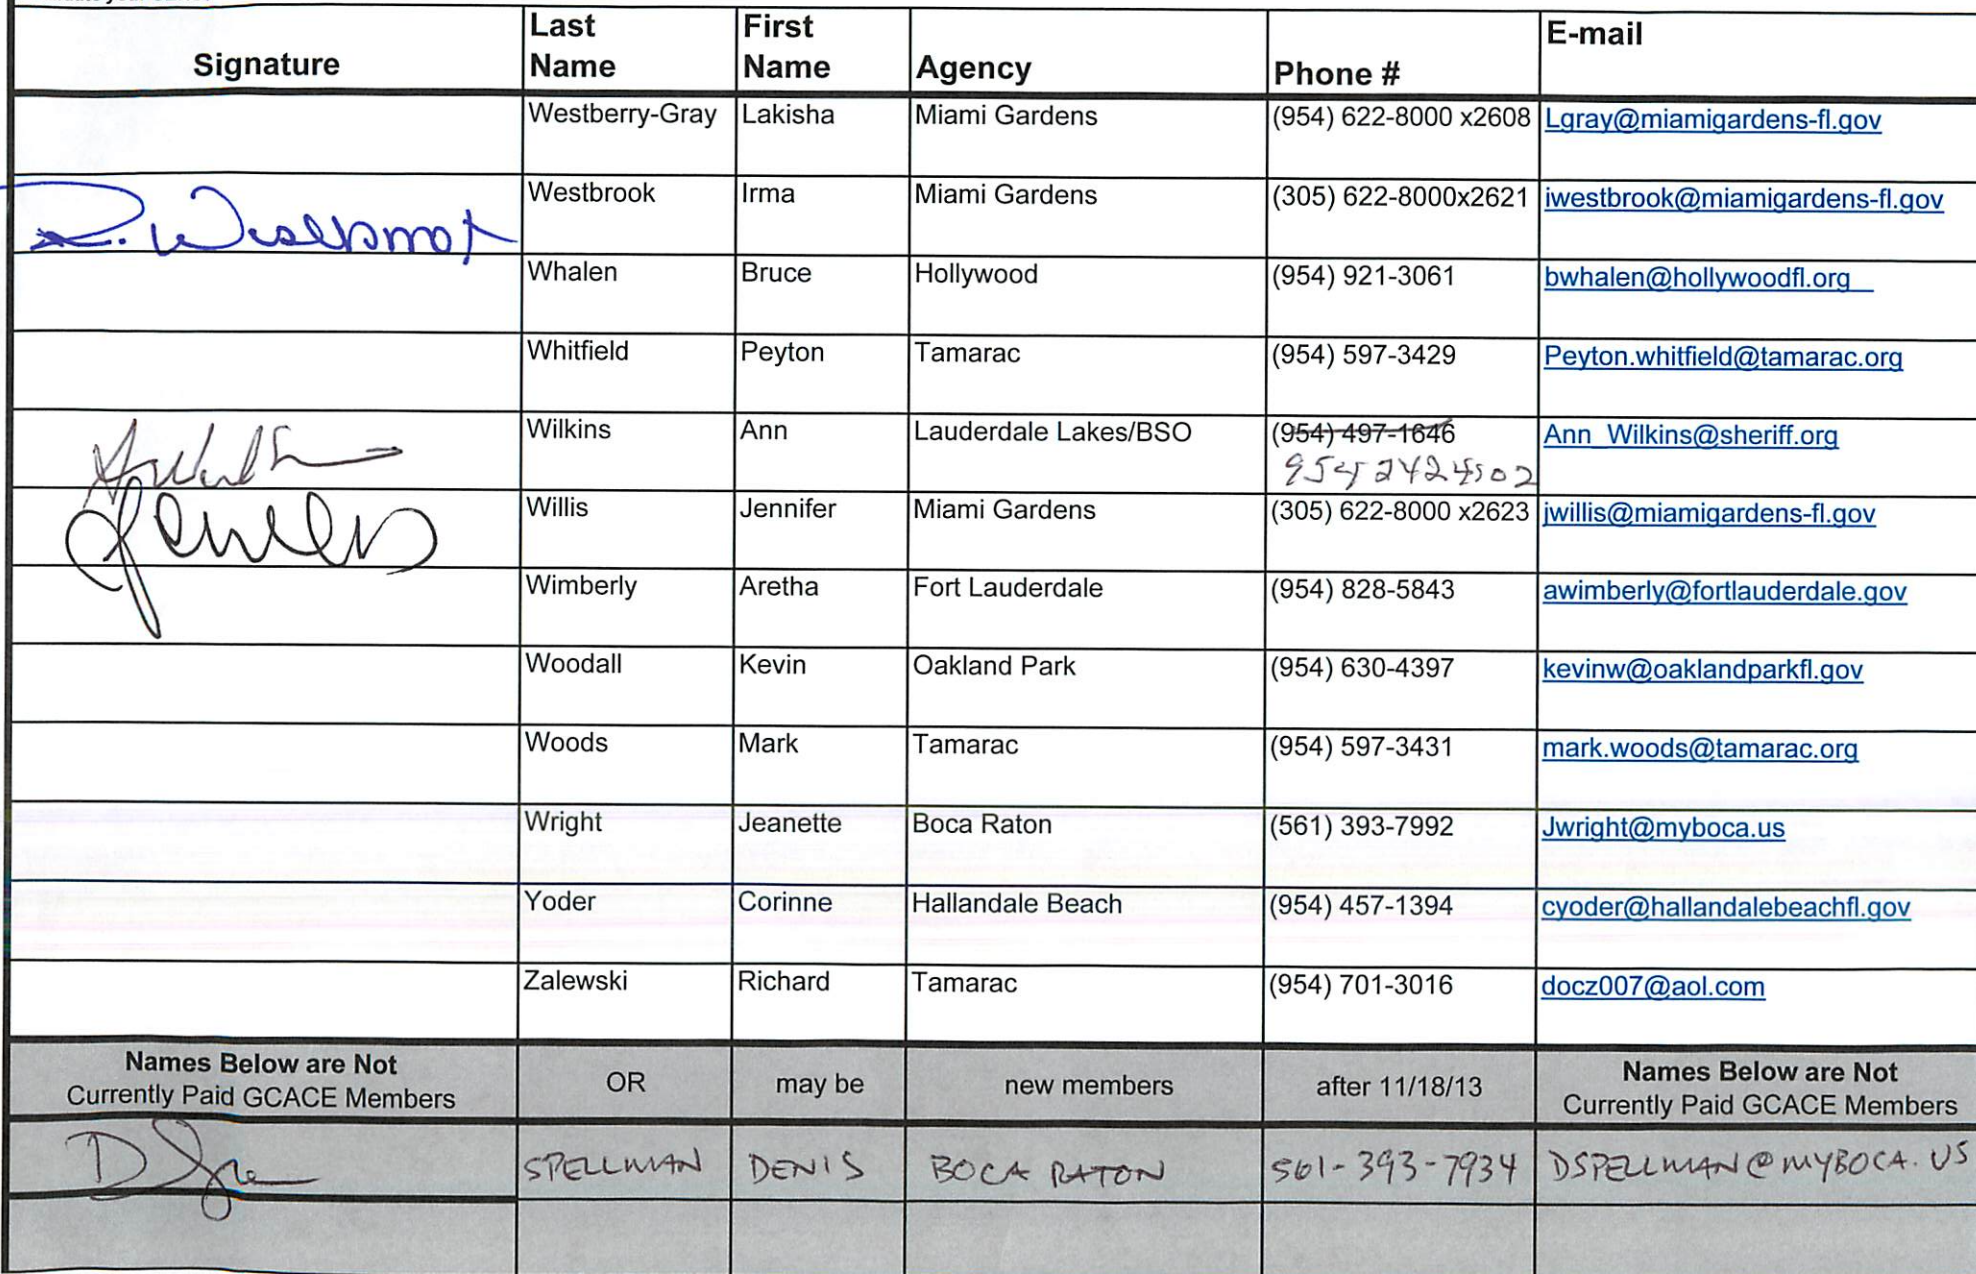 Last First E-mail
Signature Name Name Agency Phone #
Westberry-Gray Lakisha Miami Gardens (954) 622-8000 x2608 Lgray@miamigardens-fl.gov
Westbrook Irma Miami Gardens (305) 622-8000x2621 iwestbrook@miamigardens-fl.gov
Whalen Bruce Hollywood (954) 921-3061 bwhalen@hollywoodfl.org
Whitfield Peyton Tamarac (954) 597-3429 Peyton.whitfield@tamarac.org
Wilkins Ann Lauderdale Lakes/BSO (954) 497-1646 Ann_Wilkins@sheriff.org
954 2424502
Willis Jennifer Miami Gardens (305) 622-8000 x2623 jwillis@miamigardens-fl.gov
Wimberly Aretha Fort Lauderdale (954) 828-5843 awimberly@fortlauderdale.gov
Woodall Kevin Oakland Park (954) 630-4397 kevinw@oaklandparkfl.gov
Woods Mark Tamarac (954) 597-3431 mark.woods@tamarac.org
Wright Jeanette Boca Raton (561) 393-7992 Jwright@myboca.us
Yoder Corinne Hallandale Beach (954) 457-1394 cyoder@hallandalebeachfl.gov
Zalewski Richard Tamarac (954) 701-3016 docz007@aol.com
Names Below are Not OR may be new members after 11/18/13 Names Below are Not
Currently Paid GCACE Members Currently Paid GCACE Members
SPELLMAN DENIS BOCA RATON 561-393-7934 DSPELLMAN@MYBOCA.US